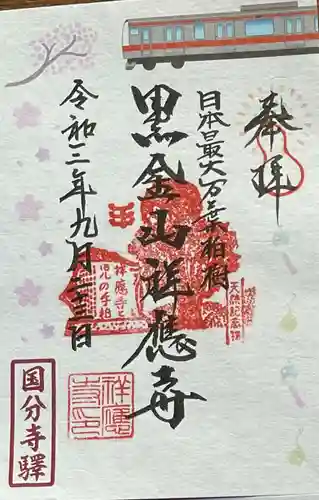 奉拝
日本最大万葉柏樹
黒金山祥應寺
令和三年九月二十三日
祥應寺と
児の手柏
天然記念
祥應
寺印
国分寺驛